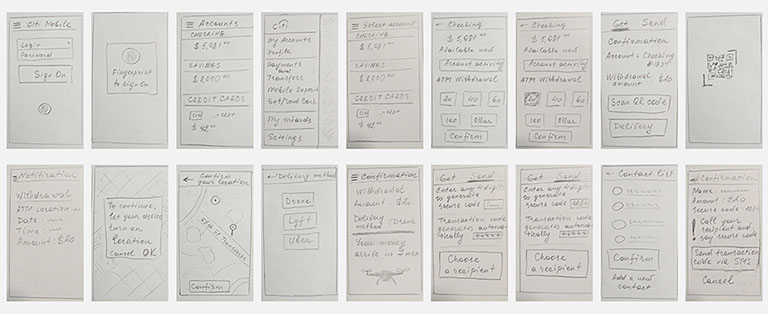 Citi Mobile
Login
Password
Sign On
Fingerprint
to sign On
Accounts
CHECKING
$ 5,081
SAVINGS
$ 2,000
CREDIT CARDS
citi
-1234
$ 42
Citi
My Accounts
Profile
Payments
and
Transfers
Mobile Deposit
Get/Send Cash
My rewards
Settings
Select account
CHECKING
$ 5,081
SAVINGS
$ 2,000
CREDIT CARDS
citi
-1234
$ 42
← Checking
$ 5,081
Available now
Account activity
ATM Withdrawal
20 40 60
100 Other
Confirm
← Checking
$ 5,081
Available now
Account activity
ATM Withdrawal
20 40 60
100 Other
Confirm
Get Send
Confirmation
Account: Checking
Withdrawal
amount: $20
Scan QR code
Delivery
Notification
Withdrawal
ATM Location
Date:
Time:
Amount: $20
To continue,
let your device
turn on
location
Cancel OK
← Confirm
your location
Confirm
← Delivery method
Drone
Lyft
Uber
Confirmation
Withdrawal
Amount: $20
Delivery
method: Drone
Your money
arrive in 7 min
Get Send
Enter any 4 digits
to generate
secure code
Transaction code
generates automa-
tically *****
Choose
a recipient
Get Send
Enter any 4 digits
to generate
secure code 1234
Transaction code
generates automa-
tically *****
Choose
a recipient
← Contact list
Confirm
Add a new
contact
Confirmation
Name:
Amount: $20
secure code: 1234
! Call your
recipient and
say secure code
Send transaction
code via SMS
Cancel